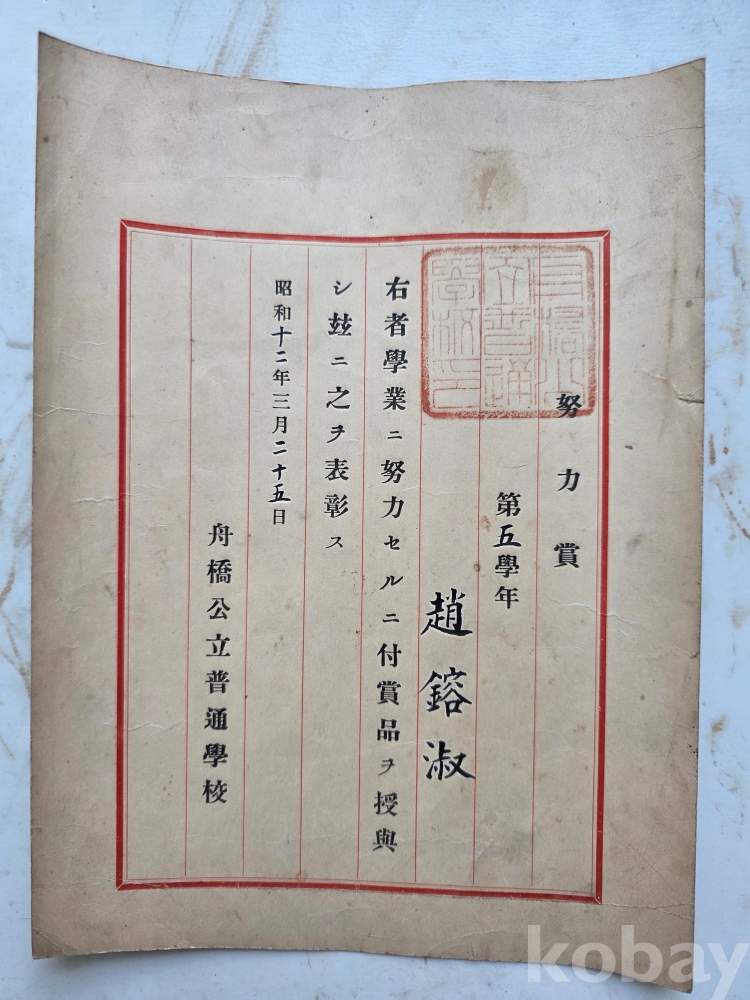 努力賞
第五學年
趙鎔淑
右者學業ニ努力セルニ付賞品ヲ授與
シ玆ニ之ヲ表彰ス
昭和十二年三月二十五日
舟橋公立普通學校
kobay